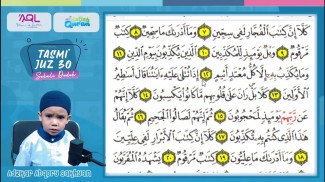 AQL
Qur'an
TASMI'
JUZ 30
Sekali Duduk
كَلَّآ إِنَّ كِتَٰبَ ٱلْفُجَّارِ لَفِى سِجِّينٍ ٧ وَمَآ أَدْرَىٰكَ مَا سِجِّينٌ ٨ كِتَٰبٌ
مَّرْقُومٌ ٩ وَيْلٌ يَوْمَئِذٍ لِّلْمُكَذِّبِينَ ١٠ ٱلَّذِينَ يُكَذِّبُونَ بِيَوْمِ ٱلدِّينِ ١١
وَمَا يُكَذِّبُ بِهِۦٓ إِلَّا كُلُّ مُعْتَدٍ أَثِيمٍ ١٢ إِذَا تُتْلَىٰ عَلَيْهِ ءَايَٰتُنَا قَالَ أَسَٰطِيرُ
ٱلْأَوَّلِينَ ١٣ كَلَّا بَلْ رَانَ عَلَىٰ قُلُوبِهِم مَّا كَانُوا۟ يَكْسِبُونَ ١٤ كَلَّآ إِنَّهُمْ
عَن رَّبِّهِمْ يَوْمَئِذٍ لَّمَحْجُوبُونَ ١٥ ثُمَّ إِنَّهُمْ لَصَالُوا۟ ٱلْجَحِيمِ ١٦ ثُمَّ يُقَالُ
هَٰذَا ٱلَّذِى كُنتُم بِهِۦ تُكَذِّبُونَ ١٧ كَلَّآ إِنَّ كِتَٰبَ ٱلْأَبْرَارِ لَفِى عِلِّيِّينَ
١٨ وَمَآ أَدْرَىٰكَ مَا عِلِّيُّونَ ١٩ كِتَٰبٌ مَّرْقُومٌ ٢٠ يَشْهَدُهُ ٱلْمُقَرَّبُونَ